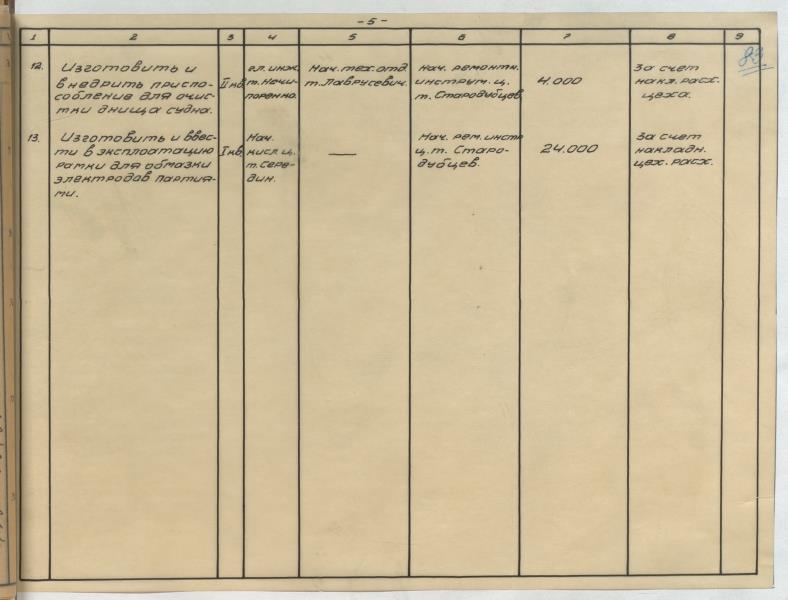 - 5 -
83.
1 2 3 4 5 6 7 8 9
12. Изготовить и
внедрить приспо-
собление для очис-
тки днища судна.
II кв.
гл. инж.
т. Нечи-
поренко.
Нач. тех. отд.
т. Лаврусевич.
Нач. ремонтн.
инструм. ц.
т. Стародубцев
4.000
За счет
накл. расх.
цеха.
13. Изготовить и ввес-
ти в эксплоатацию
рамки для обмазки
электродов партия-
ми.
I кв.
Нач.
кисл. ц.
т. Сере-
дин.
—
Нач. рем. инстр
ц. т. Старо-
дубцев.
24.000
За счет
накладн.
цех. расх.